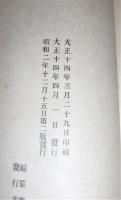 大正十四年三月二十九日印刷
大正十四年四月一日發行
昭和二年十二月十五日第二版發行
編纂
發行